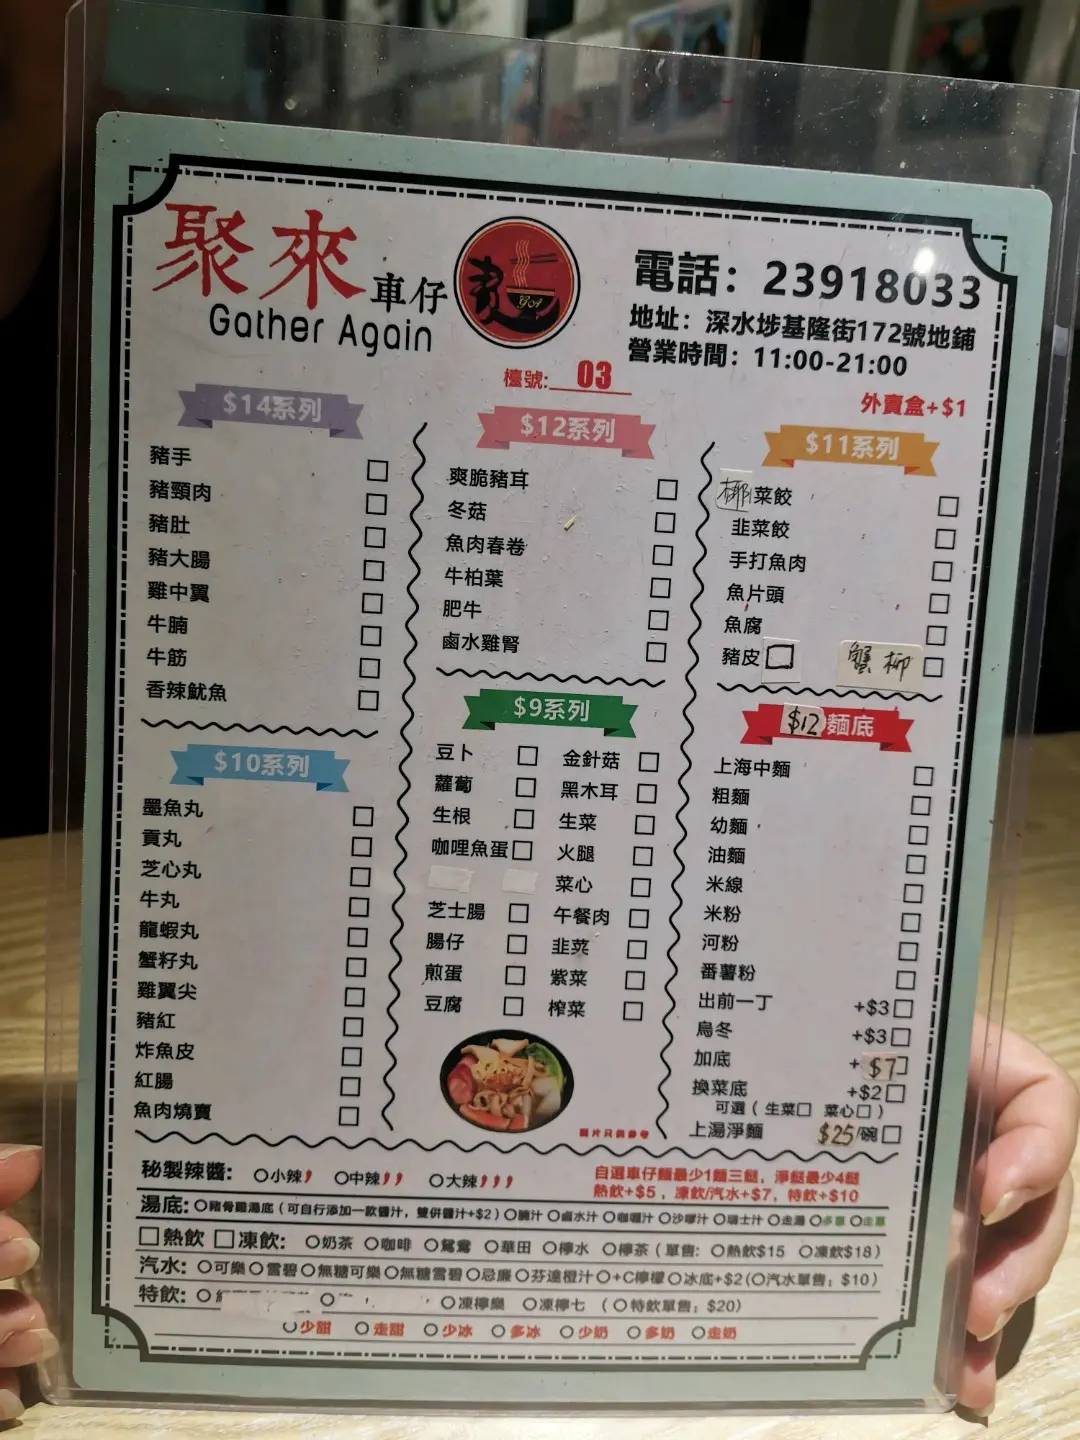 聚來 車仔麵
Gather Again
GA
電話：23918033
地址：深水埗基隆街172號地鋪
營業時間：11:00-21:00
檯號: 03
外賣盒+$1
$14系列
豬手
豬頸肉
豬肚
豬大腸
雞中翼
牛腩
牛筋
香辣魷魚
$12系列
爽脆豬耳
冬菇
魚肉春卷
牛柏葉
肥牛
鹵水雞腎
$11系列
椰菜餃
韭菜餃
手打魚肉
魚片頭
魚腐
豬皮 蟹柳
$10系列
墨魚丸
貢丸
芝心丸
牛丸
龍蝦丸
蟹籽丸
雞翼尖
豬紅
炸魚皮
紅腸
魚肉燒賣
$9系列
豆卜 金針菇
蘿蔔 黑木耳
生根 生菜
咖哩魚蛋 火腿
菜心
芝士腸 午餐肉
腸仔 韭菜
煎蛋 紫菜
豆腐 榨菜
圖片只供參考
$12 麵底
上海中麵
粗麵
幼麵
油麵
米線
米粉
河粉
番薯粉
出前一丁 +$3
烏冬 +$3
加底 +$7
換菜底 +$2
可選（生菜 菜心）
上湯淨麵 $25/碗
秘製辣醬: 小辣 中辣 大辣
自選車仔麵最少1麵三餸，淨餸最少4餸
熱飲+$5，凍飲/汽水+$7，特飲+$10
湯底: 豬骨雞湯底（可自行添加一款醬汁，雙併醬汁+$2）腩汁 鹵水汁 咖喱汁 沙嗲汁 瑞士汁 走湯 多蔥 走蔥
熱飲 凍飲: 奶茶 咖啡 鴛鴦 華田 檸水 檸茶（單售: 熱飲$15 凍飲$18）
汽水: 可樂 雪碧 無糖可樂 無糖雪碧 忌廉 芬達橙汁 +C檸檬 冰底+$2(汽水單售: $10)
特飲: 凍檸樂 凍檸七 （特飲單售; $20）
少甜 走甜 少冰 多冰 少奶 多奶 走奶